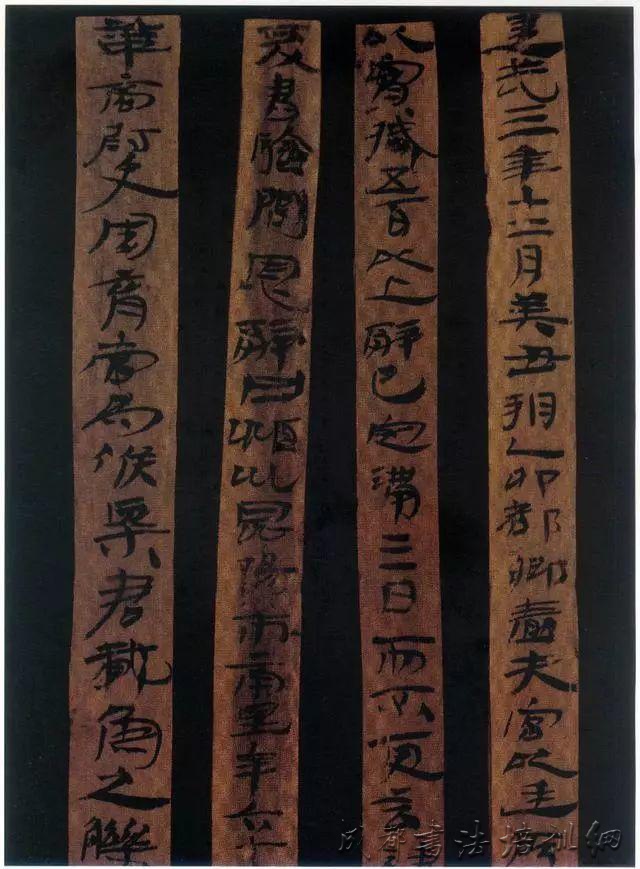 建武三年十二月癸丑朔乙卯都鄉嗇夫宮以廷所
以實臧五百以上辭已定滿三日而不更言請
爰書驗問恩辭曰潁川昆陽市南里年六十
華商尉史周育當為候粟君載魚之觻
成都書法培訓網